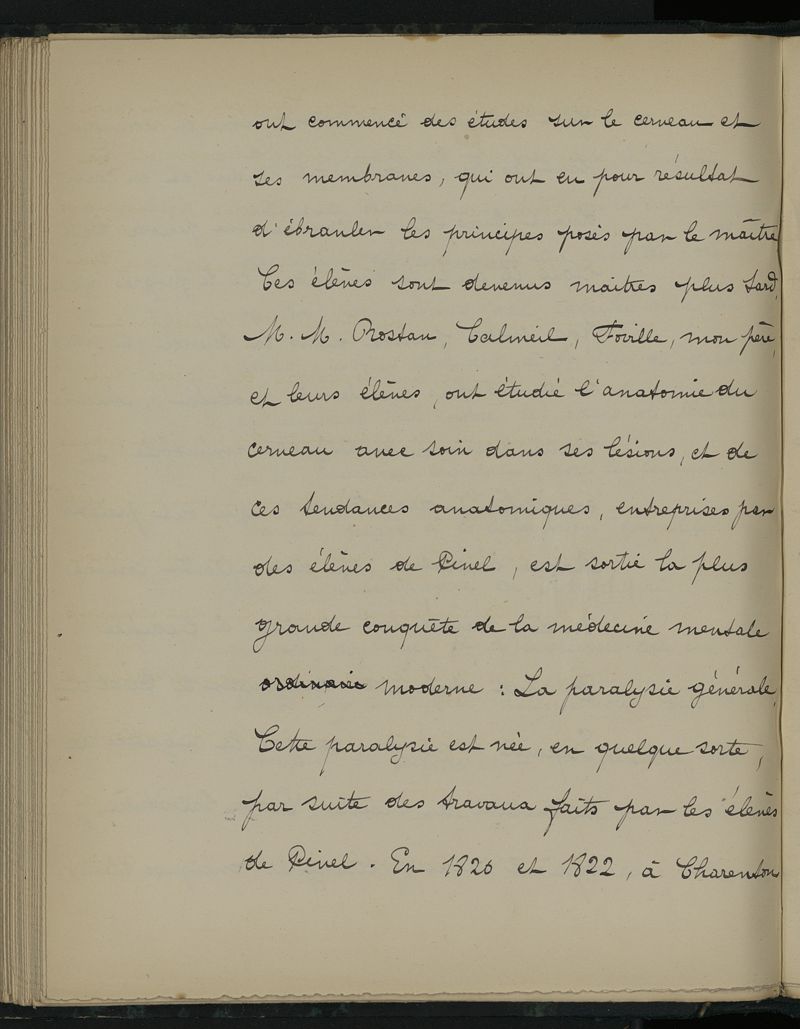 ont commencé des études sur le cerveau et
ses membranes, qui ont eu pour résultat
d'ébranler les principes posés par le maître
Ces élèves sont devenus maîtres plus tard,
M. M. Rostan, Calmeil, Foville, mon père,
et leurs élèves, ont étudié l'anatomie du
cerveau avec soin dans ses lésions, et de
ces tendances anatomiques, entreprises par
des élèves de Pinel, est sortie la plus
grande conquête de la médecine mentale
ordinaire moderne : La paralysie générale.
Cette paralysie est née, en quelque sorte,
par suite des travaux faits par les élèves
de Pinel. En 1820 et 1822, à Charenton